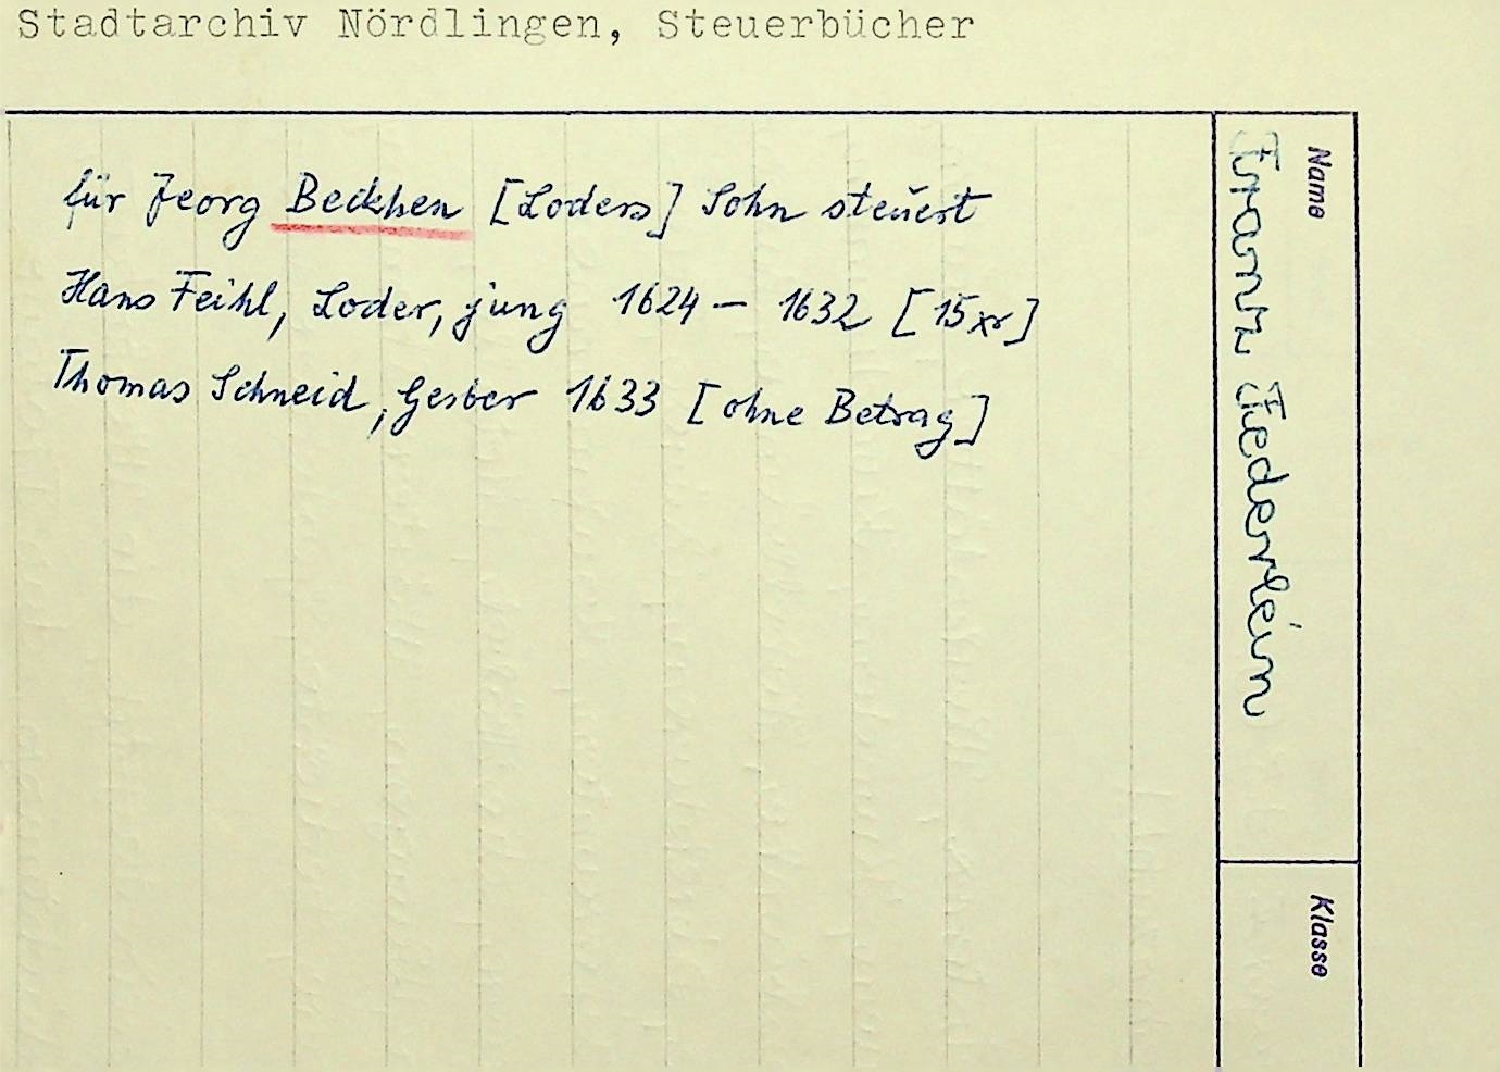 Stadtarchiv Nördlingen, Steuerbücher
für Georg Beckhen [Loders] Sohn steuert
Hans Feihl, Loder, jung 1624 – 1632 [15 xr]
Thomas Schneid, Gerber 1633 [ohne Betrag]
Name
Franz Federlein
Klasse